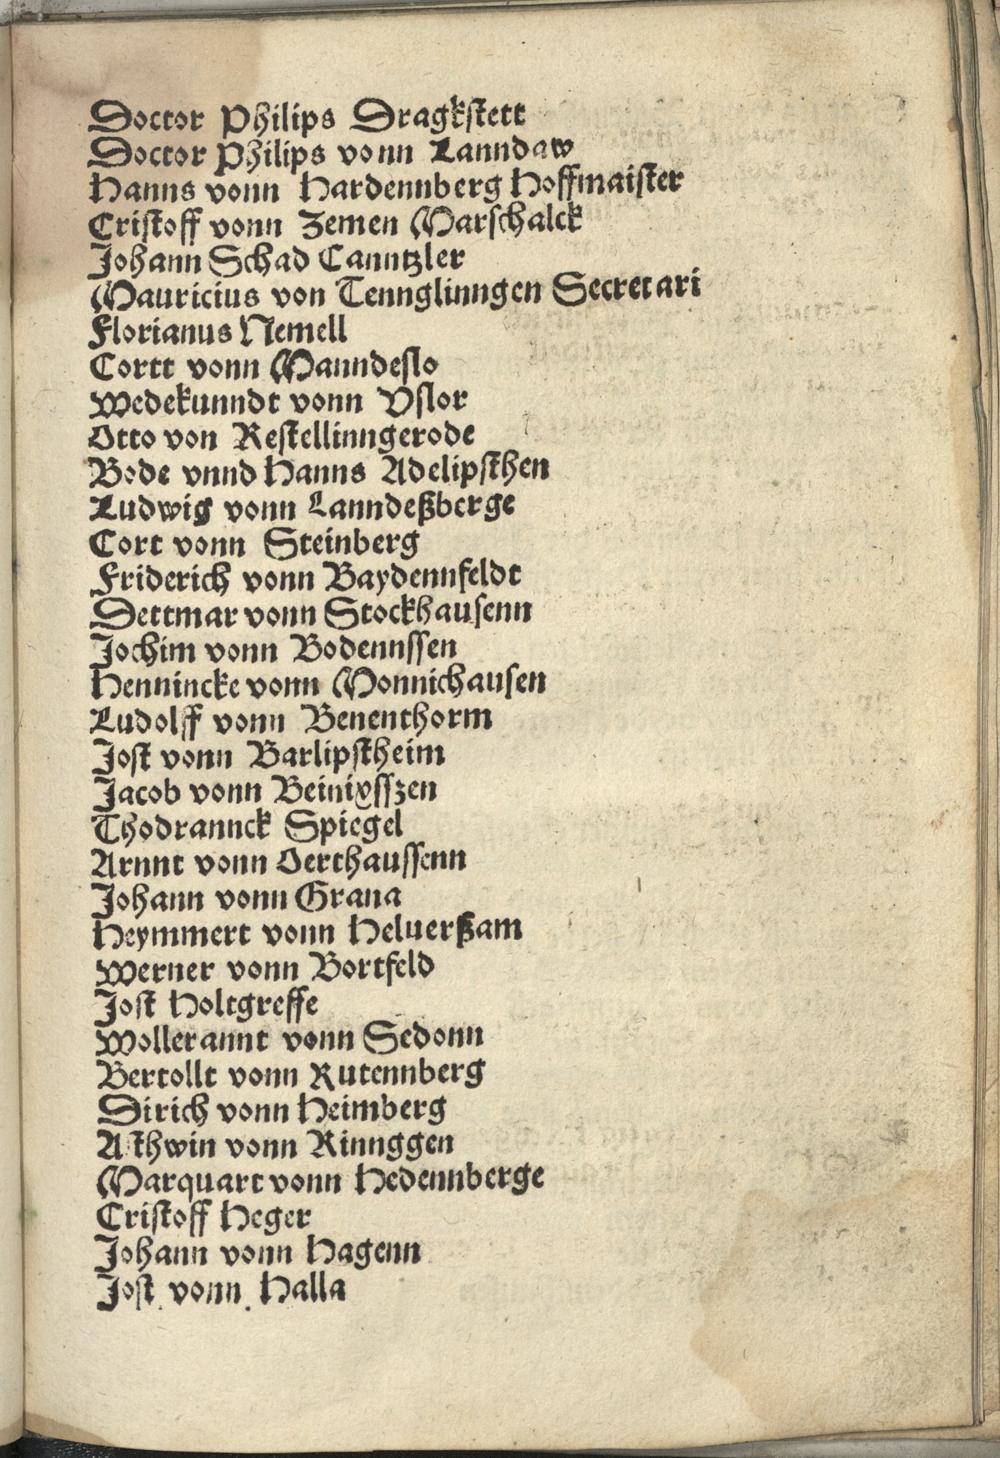 Doctor Philips Dragkstett
Doctor Philips vonn Lanndaw
Hanns vonn Hardennberg Hoffmaister
Cristoff vonn Zemen Marschalck
Johann Schad Canntzler
Mauricius von Tennglinngen Secretari
Florianus Nemell
Cortt vonn Manndeslo
Wedekunndt vonn Vslor
Otto von Restellinngerode
Bode vnnd Hanns Adelipsthen
Ludwig vonn Lanndeßberge
Cort vonn Steinberg
Friderich vonn Baydennfeldt
Dettmar vonn Stockhausenn
Jochim vonn Bodennssen
Hennincke vonn Monnichausen
Ludolff vonn Benenthorm
Jost vonn Barlipstheim
Jacob vonn Beinixsszen
Thodrannck Spiegel
Arnnt vonn Oerthaussenn
Johann vonn Grana
Heymmert vonn Heluerßam
Werner vonn Bortfeld
Jost Holtgreffe
Wollerannt vonn Sedonn
Bertollt vonn Rutennberg
Dirich vonn Heimberg
vonn Rinnggen
Marquart vonn Hedennberge
Cristoff Heger
Johann vonn Hagenn
Jost vonn Halla